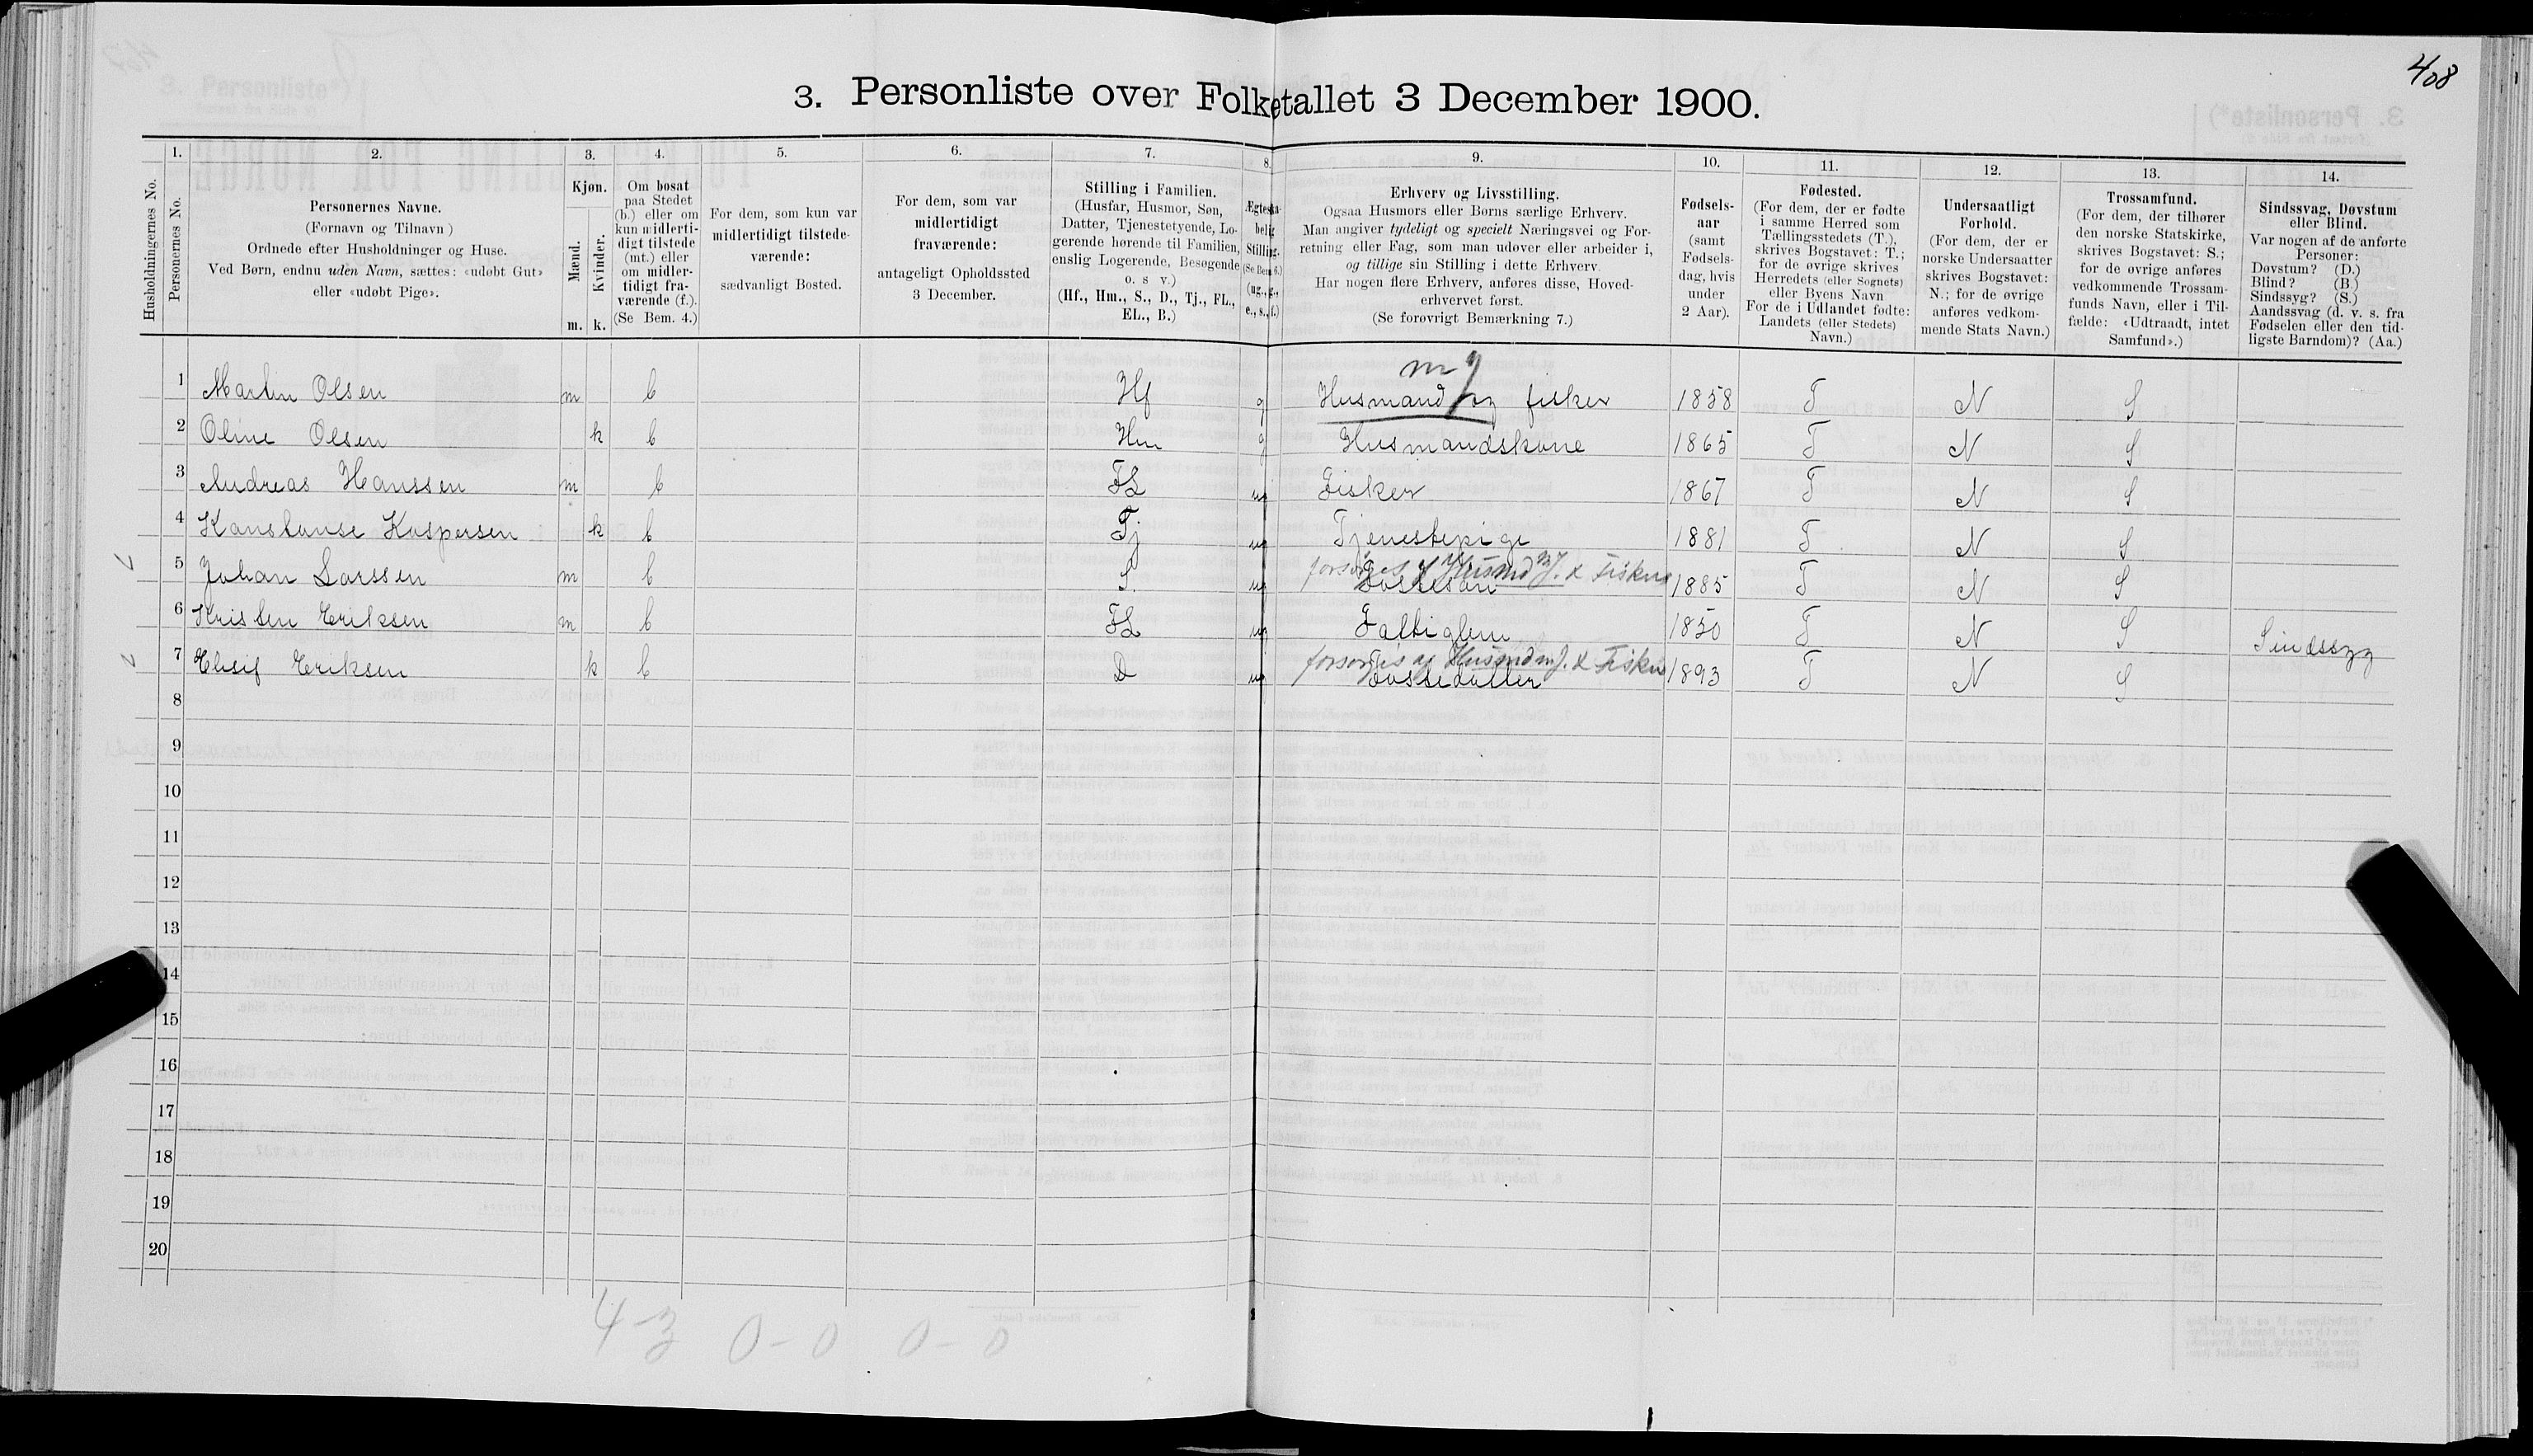 408
3. Personliste over Folketallet 3 December 1900.
Husholdningernes No.
1.
Personernes No.
2.
Personernes Navne.
(Fornavn og Tilnavn)
Ordnede efter Husholdninger og Huse.
Ved Børn, endnu uden Navn, sættes: «udøbt Gut»
eller «udøbt Pige».
3.
Kjøn.
Mænd.
Kvinder.
m. k.
4.
Om bosat
paa Stedet
(b.) eller om
kun midlerti-
digt tilstede
(mt.) eller
om midler-
tidigt fra-
værende (f.).
(Se Bem. 4.)
5.
For dem, som kun var
midlertidigt tilstede-
værende:
sædvanligt Bosted.
6.
For dem, som var
midlertidigt
fraværende:
antageligt Opholdssted
3 December.
7.
Stilling i Familien.
(Husfar, Husmor, Søn,
Datter, Tjenestetyende, Lo-
gerende hørende til Familien,
enslig Logerende, Besøgende
o. s v.)
(Hf., Hm., S., D., Tj., FL.,
EL., B.)
8.
Ægteska-
belig
Stilling.
(Se Bem 6.)
(ug., g.,
e., s., f.)
9.
Erhverv og Livsstilling.
Ogsaa Husmors eller Børns særlige Erhverv.
Man angiver tydeligt og specielt Næringsvei og For-
retning eller Fag, som man udøver eller arbeider i,
og tillige sin Stilling i dette Erhverv.
Har nogen flere Erhverv, anføres disse, Hoved-
erhvervet først.
(Se forøvrigt Bemærkning 7.)
10.
Fødsels-
aar
(samt
Fødsels-
dag, hvis
under
2 Aar).
11.
Fødested.
(For dem, der er fødte
i samme Herred som
Tællingsstedets (T.),
skrives Bogstavet: T.;
for de øvrige skrives
Herredets (eller Sognets)
eller Byens Navn
For de i Udlandet fødte:
Landets (eller Stedets)
Navn.)
12.
Undersaatligt
Forhold.
(For dem, der er
norske Undersaatter
skrives Bogstavet:
N.; for de øvrige
anføres vedkom-
mende Stats Navn.)
13.
Trossamfund.
(For dem, der tilhører
den norske Statskirke,
skrives Bogstavet: S.;
for de øvrige anføres
vedkommende Trossam-
funds Navn, eller i Til-
fælde: «Udtraadt, intet
Samfund».)
14.
Sindssvag, Døvstum
eller Blind.
Var nogen af de anførte
Personer:
Døvstum? (D.)
Blind? (B.)
Sindssyg? (S.)
Aandssvag (d. v. s. fra
Fødselen eller den tid-
ligste Barndom)? (Aa.)
m J
1 Martin Olsen m b Hf g Husmand og fisker 1858 T N S
2 Oline Olsen k b Hm g Husmandskone 1865 T N S
3 Andreas Hanssen m b FL ug Fisker 1867 T N S
4 Konstanse Kaspersen k b Tj ug Tjenestepige 1881 T N S
forsørges af Husmd m J. & Fisker
5 Johan Larssen m b S. ug Fostesøn 1885 T N S
6 Kristen Eriksen m b FL ug Faltiglem 1850 T N S Sindssyg
forsørges af Husmd m J. & Fisker
7 Elisif Eriksen k b D ug Fostedatter 1893 T N S
8
9
10
11
12
13
14
15
16
17
18
19
20
4-3 0-0 0-0